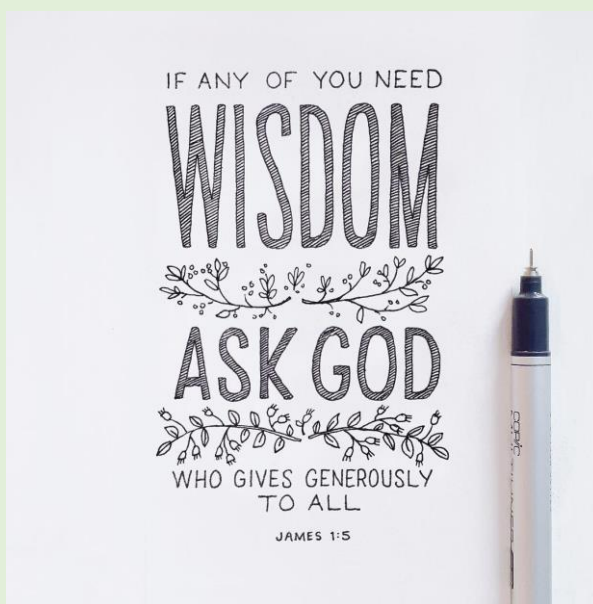 IF ANY OF YOU NEED
WISDOM
ASK GOD
WHO GIVES GENEROUSLY
TO ALL
JAMES 1:5
COPIC